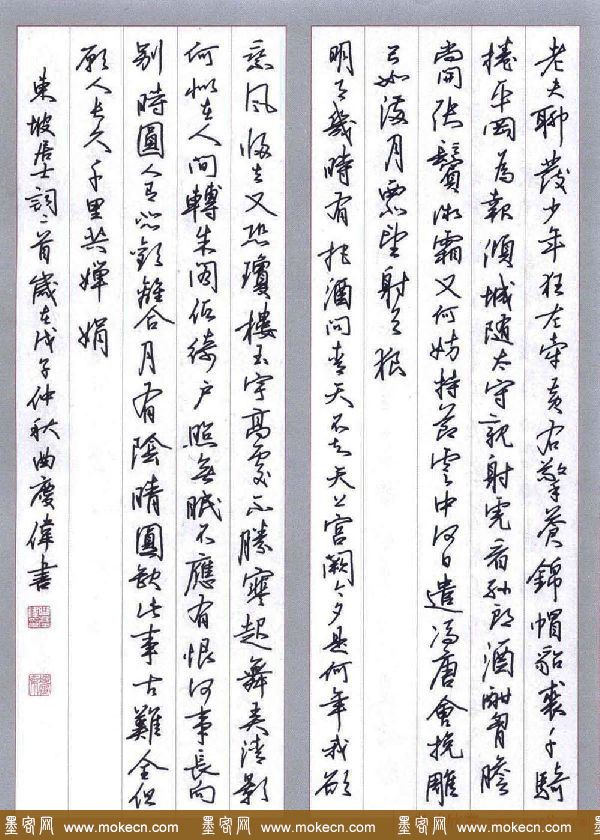 老夫聊發少年狂左牽黃右擎蒼錦帽貂裘千騎
捲平岡為報傾城隨太守親射虎看孫郎酒酣胸膽
尚開張鬢微霜又何妨持節雲中何日遣馮唐會挽雕
弓如滿月西北望射天狼
明月幾時有把酒問青天不知天上宮闕今夕是何年我欲
乘風歸去又恐瓊樓玉宇高處不勝寒起舞弄清影
何似在人間轉朱閣低綺戶照無眠不應有恨何事長向
別時圓人有悲歡離合月有陰晴圓缺此事古難全但
願人長久千里共嬋娟
東坡居士詞二首歲在戊子仲秋曲慶偉書
墨客网 www.mokecn.com 墨客网 www.mokecn.com 墨客网 www.mokecn.com